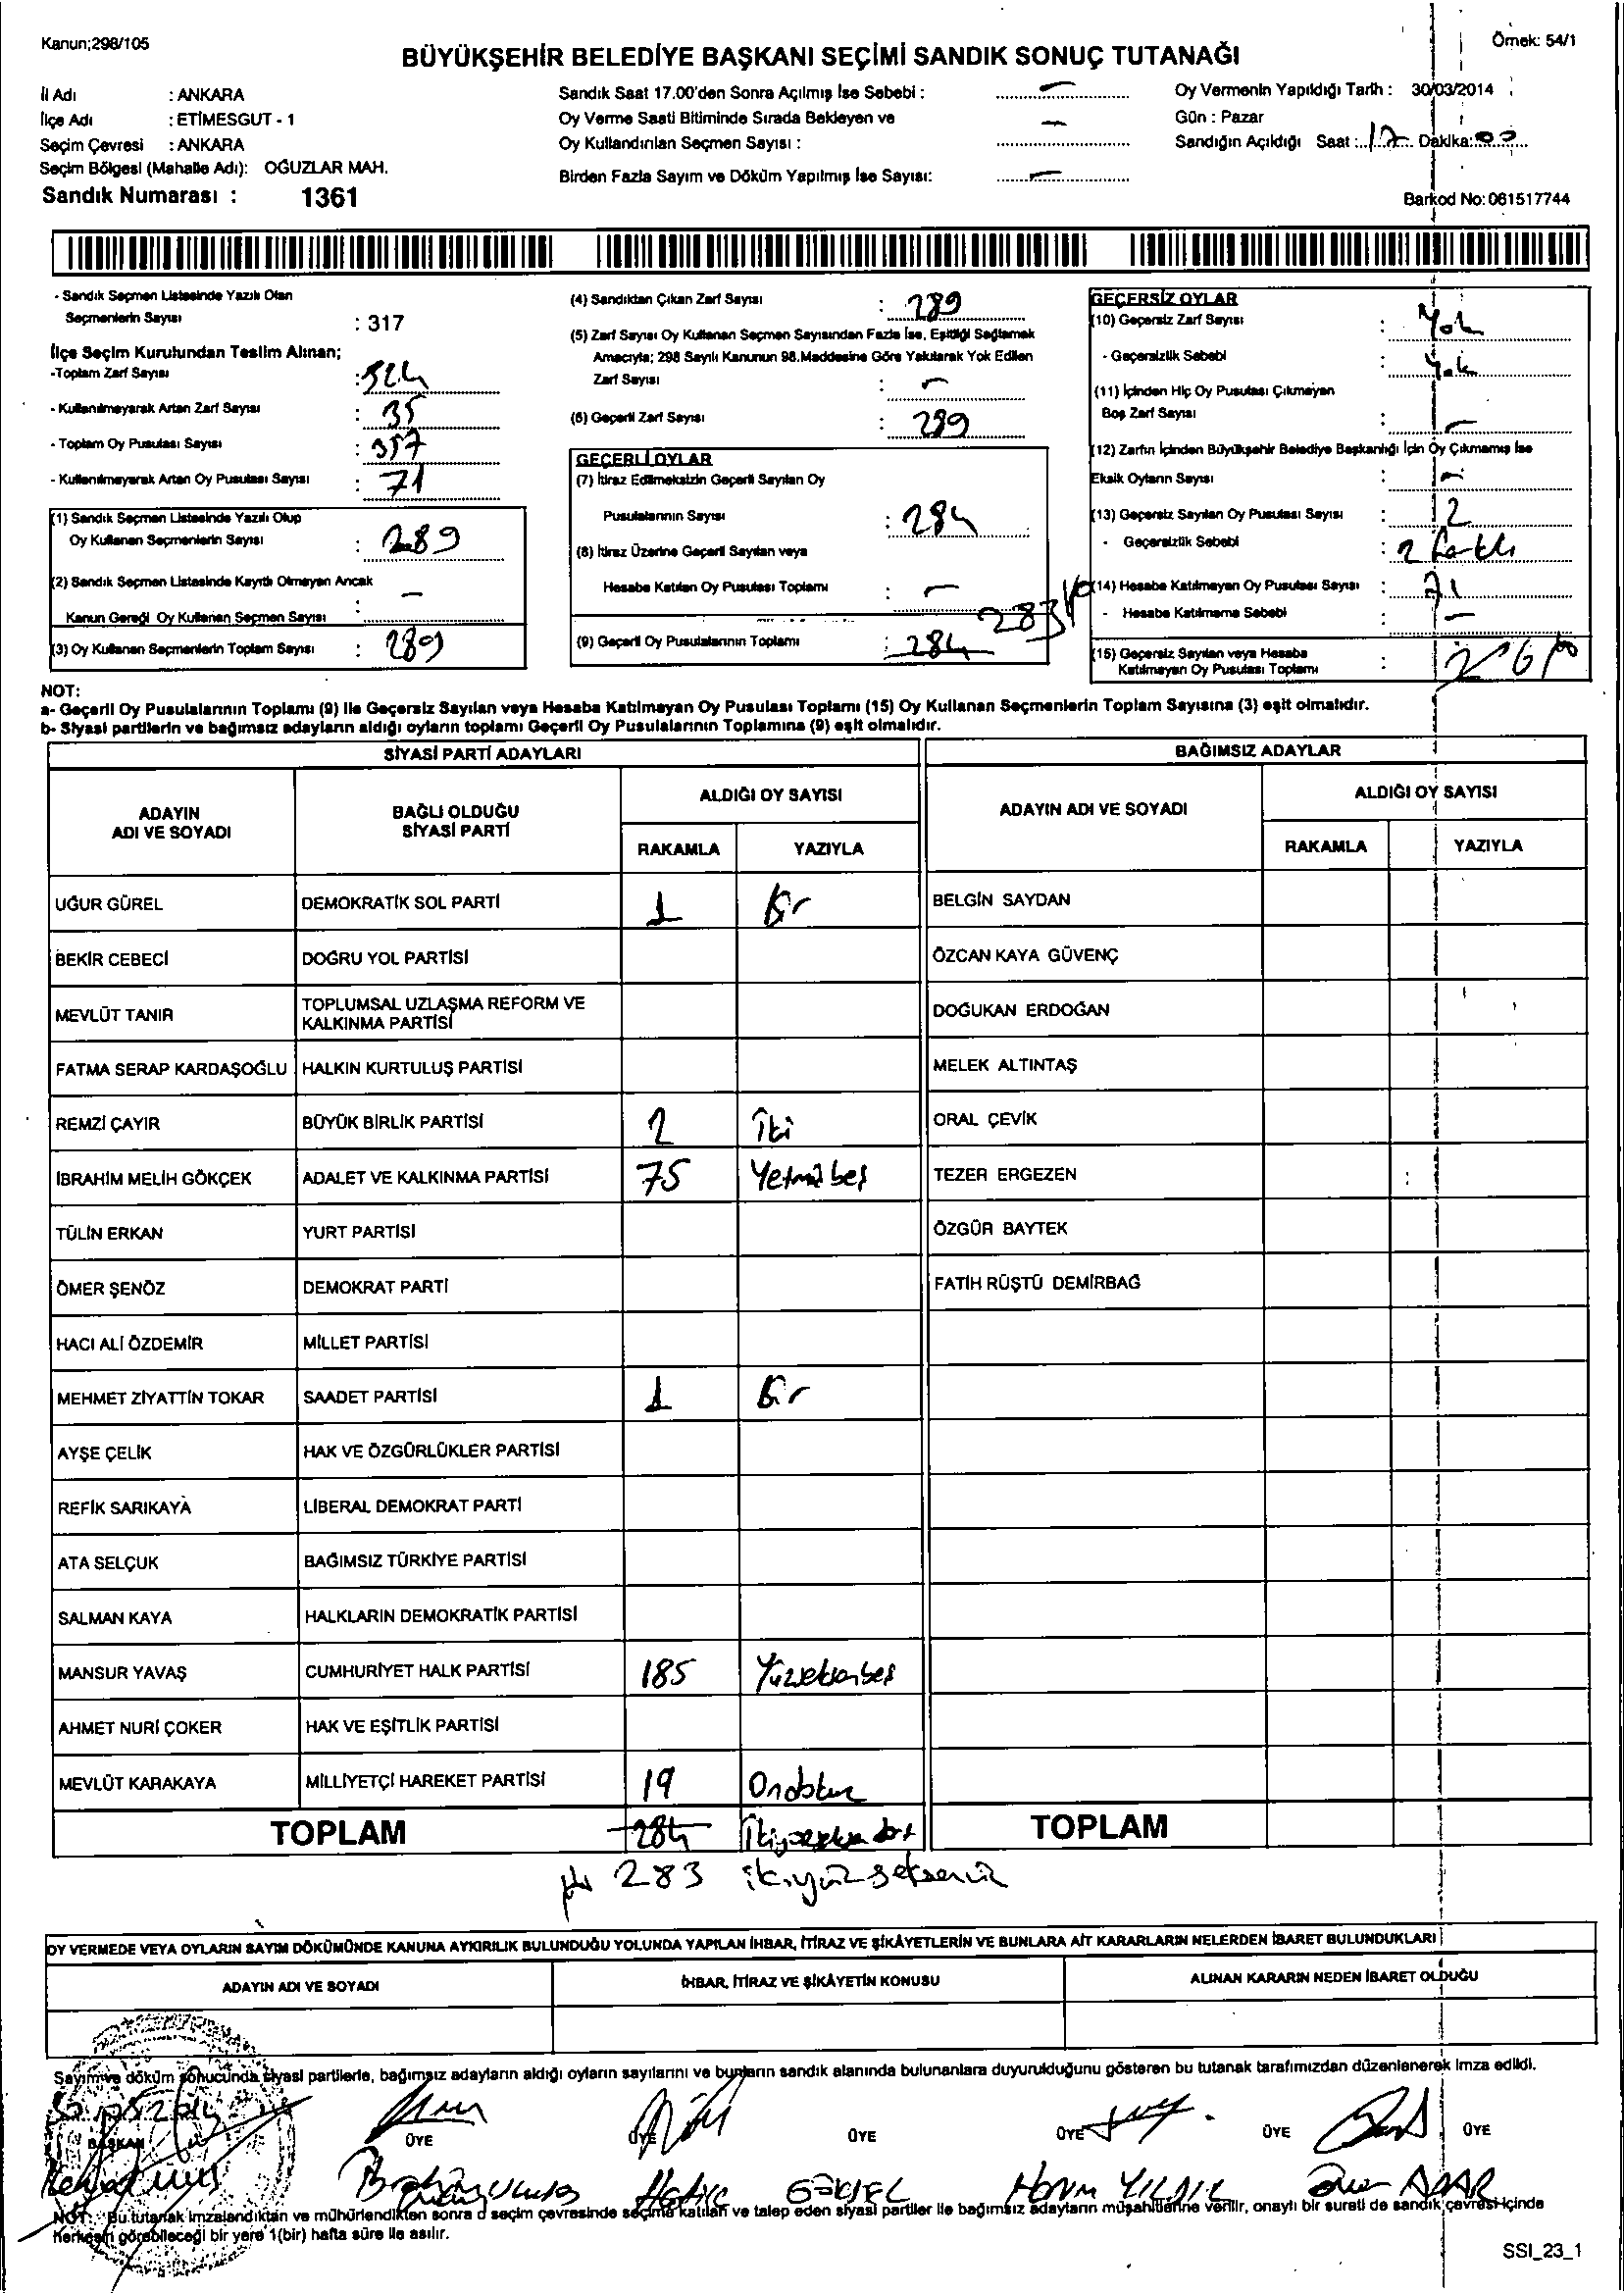 Kanun;298/105
Örnek: 54/1
BÜYÜKŞEHİR BELEDİYE BAŞKANI SEÇİMİ SANDIK SONUÇ TUTANAĞI
İl Adı : ANKARA
İlçe Adı : ETİMESGUT - 1
Seçim Çevresi : ANKARA
Seçim Bölgesi (Mahalle Adı): OĞUZLAR MAH.
Sandık Numarası : 1361
Sandık Saat 17.00'den Sonra Açılmış İse Sebebi : —
Oy Verme Saati Bitiminde Sırada Bekleyen ve
Oy Kullandırılan Seçmen Sayısı : —
Birden Fazla Sayım ve Döküm Yapılmış İse Sayısı: —
Oy Vermenin Yapıldığı Tarih : 30/03/2014
Gün : Pazar
Sandığın Açıldığı Saat : 17 Dakika: 00
Barkod No: 061517744
- Sandık Seçmen Listesinde Yazılı Olan
Seçmenlerin Sayısı : 317
İlçe Seçim Kurulundan Teslim Alınan;
-Toplam Zarf Sayısı : 324
- Kullanılmayarak Artan Zarf Sayısı : 35
- Toplam Oy Pusulası Sayısı : 357
- Kullanılmayarak Artan Oy Pusulası Sayısı : 71
(1) Sandık Seçmen Listesinde Yazılı Olup
Oy Kullanan Seçmenlerin Sayısı : 289
(2) Sandık Seçmen Listesinde Kayıtlı Olmayan Ancak
Kanun Gereği Oy Kullanan Seçmen Sayısı : —
(3) Oy Kullanan Seçmenlerin Toplam Sayısı : 289
(4) Sandıktan Çıkan Zarf Sayısı : 289
(5) Zarf Sayısı Oy Kullanan Seçmen Sayısından Fazla İse, Eşitliği Sağlamak
Amacıyla; 298 Sayılı Kanunun 98.Maddesine Göre Yakılarak Yok Edilen
Zarf Sayısı : —
(6) Geçerli Zarf Sayısı : 289
GEÇERLİ OYLAR
(7) İtiraz Edilmeksizin Geçerli Sayılan Oy
Pusulalarının Sayısı : 284
(8) İtiraz Üzerine Geçerli Sayılan veya
Hesaba Katılan Oy Pusulası Toplamı : —
283
(9) Geçerli Oy Pusulalarının Toplamı : 284
GEÇERSİZ OYLAR
(10) Geçersiz Zarf Sayısı : Yok
- Geçersizlik Sebebi : Yok
(11) İçinden Hiç Oy Pusulası Çıkmayan
Boş Zarf Sayısı : —
(12) Zarfın İçinden Büyükşehir Belediye Başkanlığı İçin Oy Çıkmamış İse
Eksik Oyların Sayısı : —
(13) Geçersiz Sayılan Oy Pusulası Sayısı : 2
- Geçersizlik Sebebi : 2 farklı
(14) Hesaba Katılmayan Oy Pusulası Sayısı : 71
- Hesaba Katılmama Sebebi : —
(15) Geçersiz Sayılan veya Hesaba
Katılmayan Oy Pusulası Toplamı :
NOT:
a- Geçerli Oy Pusulalarının Toplamı (9) ile Geçersiz Sayılan veya Hesaba Katılmayan Oy Pusulası Toplamı (15) Oy Kullanan Seçmenlerin Toplam Sayısına (3) eşit olmalıdır.
b- Siyasi partilerin ve bağımsız adayların aldığı oyların toplamı Geçerli Oy Pusulalarının Toplamına (9) eşit olmalıdır.
SİYASİ PARTİ ADAYLARI
BAĞIMSIZ ADAYLAR
ADAYIN ADI VE SOYADI
BAĞLI OLDUĞU SİYASİ PARTİ
ALDIĞI OY SAYISI
RAKAMLA YAZIYLA
ADAYIN ADI VE SOYADI
ALDIĞI OY SAYISI
RAKAMLA YAZIYLA
UĞUR GÜREL DEMOKRATİK SOL PARTİ 1 Bir BELGİN SAYDAN
BEKİR CEBECİ DOĞRU YOL PARTİSİ ÖZCAN KAYA GÜVENÇ
MEVLÜT TANIR TOPLUMSAL UZLAŞMA REFORM VE KALKINMA PARTİSİ DOĞUKAN ERDOĞAN
FATMA SERAP KARDAŞOĞLU HALKIN KURTULUŞ PARTİSİ MELEK ALTINTAŞ
REMZİ ÇAYIR BÜYÜK BİRLİK PARTİSİ 2 İki ORAL ÇEVİK
İBRAHİM MELİH GÖKÇEK ADALET VE KALKINMA PARTİSİ 75 Yetmişbeş TEZER ERGEZEN
TÜLİN ERKAN YURT PARTİSİ ÖZGÜR BAYTEK
ÖMER ŞENÖZ DEMOKRAT PARTİ FATİH RÜŞTÜ DEMİRBAĞ
HACI ALİ ÖZDEMİR MİLLET PARTİSİ
MEHMET ZİYATTİN TOKAR SAADET PARTİSİ 1 Bir
AYŞE ÇELİK HAK VE ÖZGÜRLÜKLER PARTİSİ
REFİK SARIKAYA LİBERAL DEMOKRAT PARTİ
ATA SELÇUK BAĞIMSIZ TÜRKİYE PARTİSİ
SALMAN KAYA HALKLARIN DEMOKRATİK PARTİSİ
MANSUR YAVAŞ CUMHURİYET HALK PARTİSİ 185 Yüzseksenbeş
AHMET NURİ ÇOKER HAK VE EŞİTLİK PARTİSİ
MEVLÜT KARAKAYA MİLLİYETÇİ HAREKET PARTİSİ 19 Ondokuz
TOPLAM 284 İkiyüzseksendört TOPLAM
283 ikiyüzseksenüç
OY VERMEDE VEYA OYLARIN SAYIM DÖKÜMÜNDE KANUNA AYKIRILIK BULUNDUĞU YOLUNDA YAPILAN İHBAR, İTİRAZ VE ŞİKÂYETLERİN VE BUNLARA AİT KARARLARIN NELERDEN İBARET BULUNDUKLARI
ADAYIN ADI VE SOYADI İHBAR, İTİRAZ VE ŞİKÂYETİN KONUSU ALINAN KARARIN NEDEN İBARET OLDUĞU
Sayım ve döküm sonucunda siyasi partilerle, bağımsız adayların aldığı oyların sayılarını ve bunların sandık alanında bulunanlara duyurulduğunu gösteren bu tutanak tarafımızdan düzenlenerek imza edildi.
BAŞKAN ÜYE ÜYE ÜYE ÜYE ÜYE ÜYE
Hatice GÖKTEL Harun YILDIZ Ömer ACAR
NOT: Bu tutanak imzalandıktan ve mühürlendikten sonra o seçim çevresinde seçime katılan ve talep eden siyasi partiler ile bağımsız adayların müşahitlerine verilir, onaylı bir sureti de sandık çevresi içinde
herkesin görebileceği bir yere 1(bir) hafta süre ile asılır.
SSI_23_1